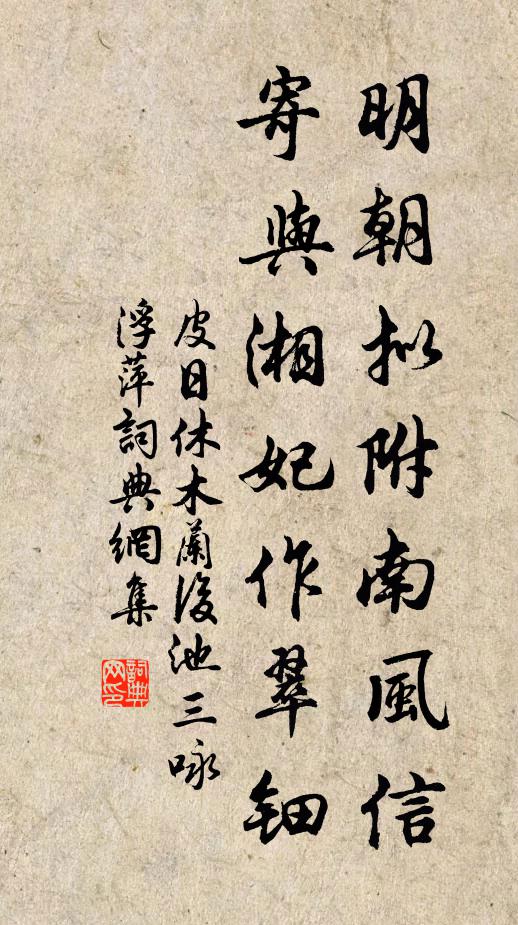 明朝拟附南風信
寄與湘妃作翠钿
皮日休木蘭後池三咏
浮萍詞典網集
詞典
网印